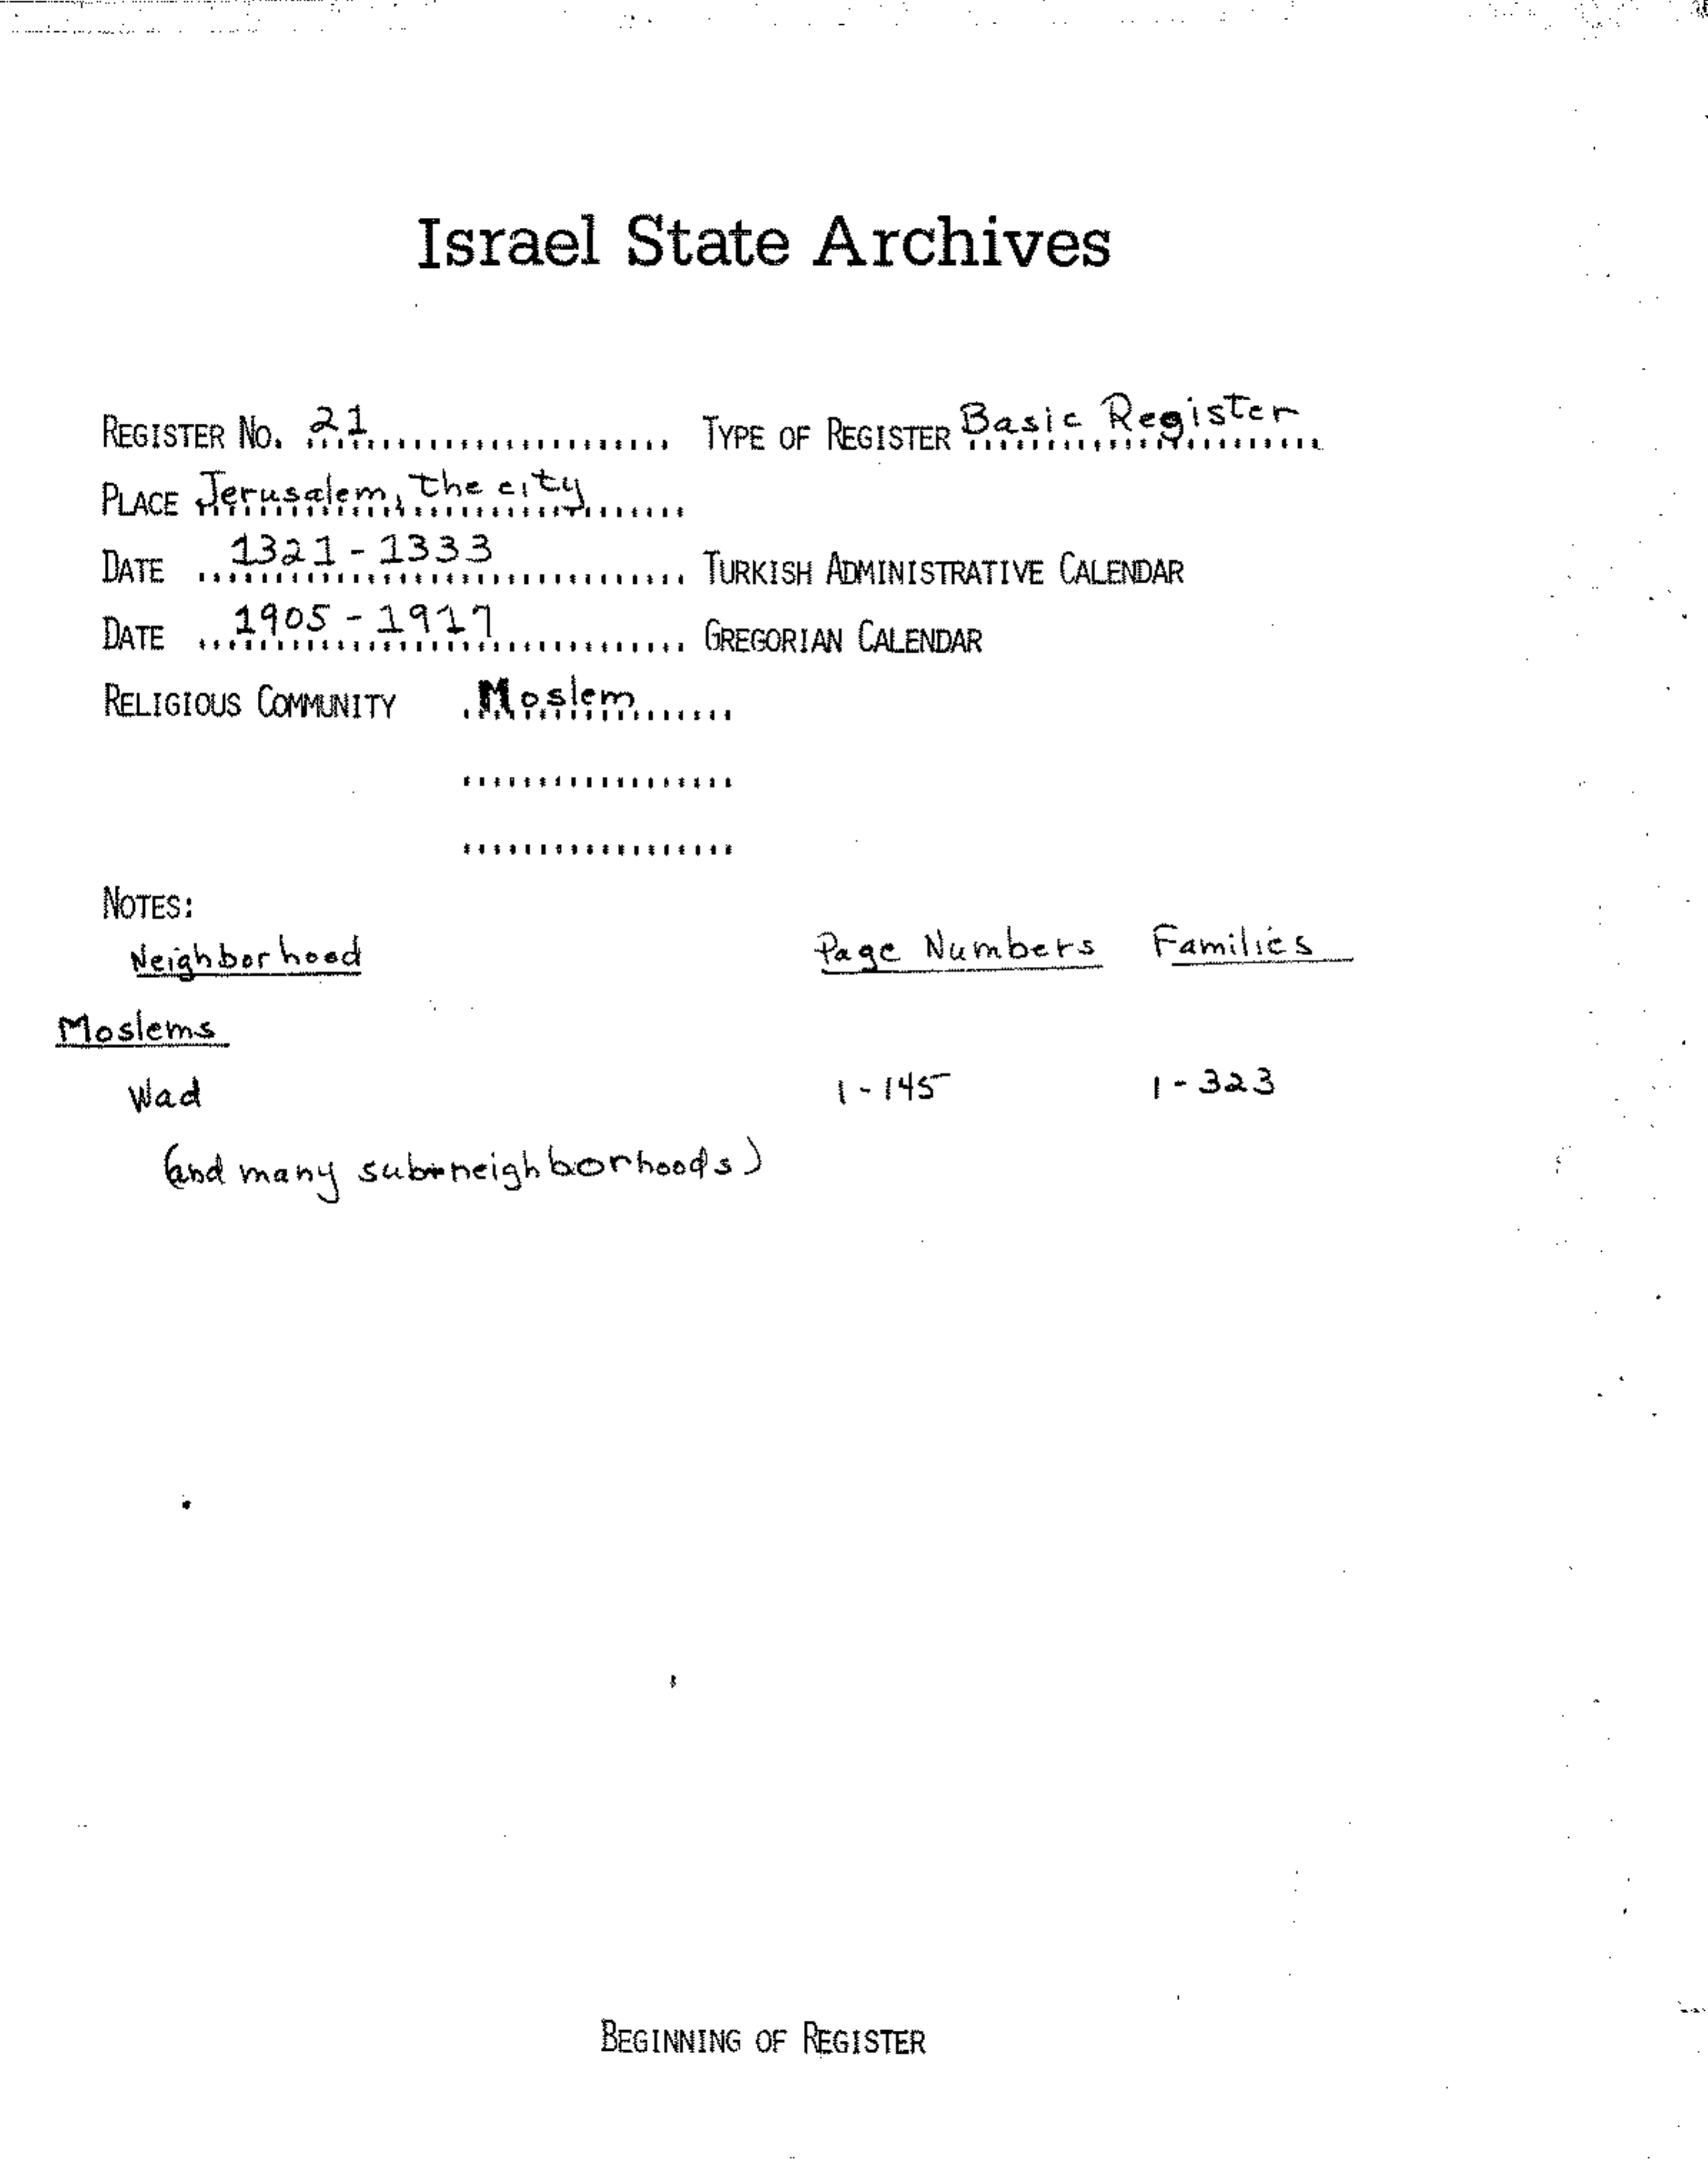 Israel State Archives
REGISTER No. 21 TYPE OF REGISTER Basic Register
PLACE Jerusalem, the city
DATE 1321-1333 TURKISH ADMINISTRATIVE CALENDAR
DATE 1905-1917 GREGORIAN CALENDAR
RELIGIOUS COMMUNITY Moslem
NOTES:
Neighborhood Page Numbers Families
Moslems
Wad 1-145 1-323
(and many sub-neighborhoods)
BEGINNING OF REGISTER